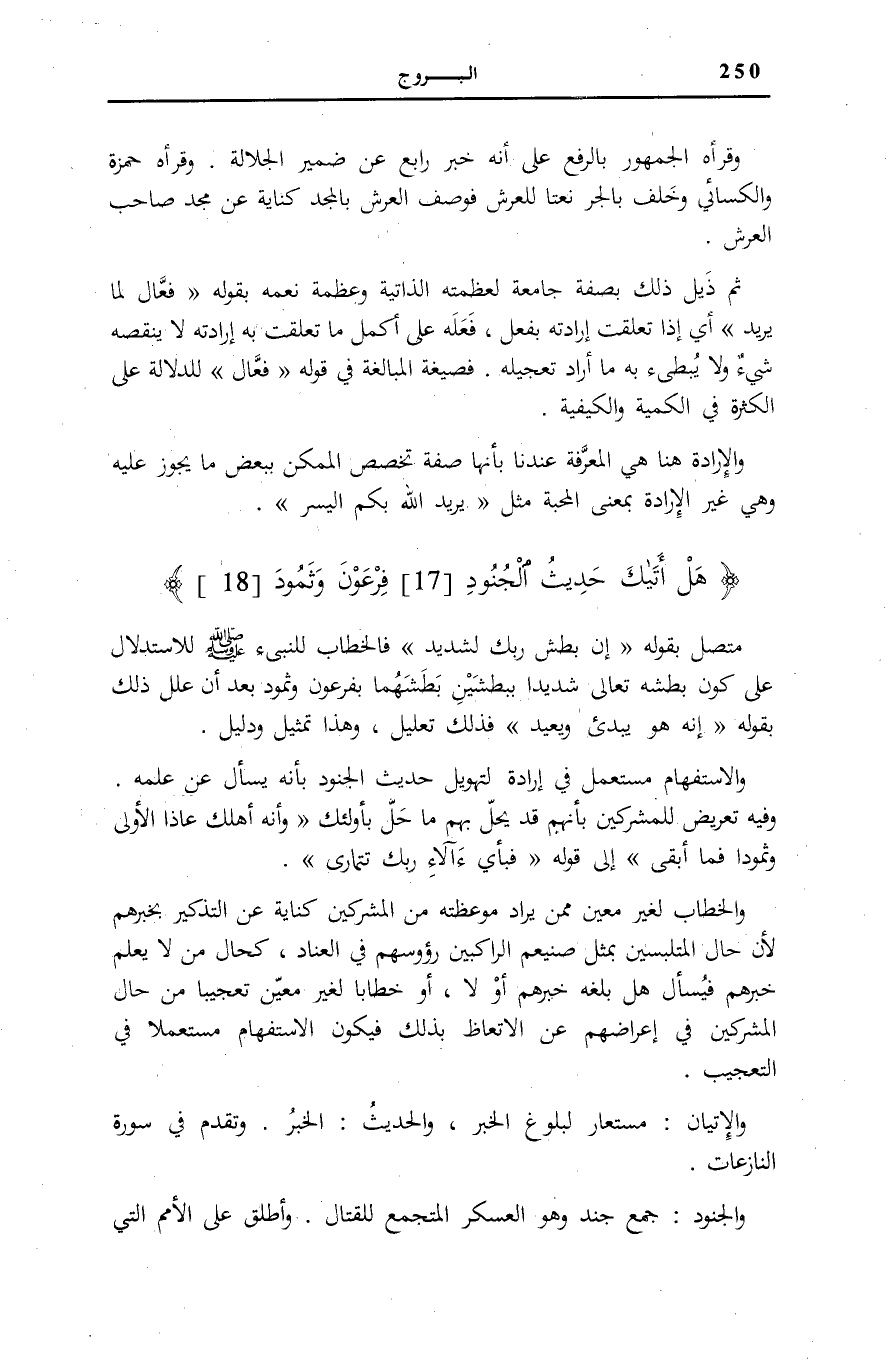 250
البـــروج
وقرأه الجمهور بالرفع على أنه خبر رابع عن ضمير الجلالة . وقرأه حمزة
والكسائي وخَلف بالجر نعتا للعرش فوصف العرش بالمجد كناية عن مجد صاحب
العرش .
ثم ذَيل ذلك بصفة جامعة لعظمته الذاتية وعظمة نعمه بقوله « فعَّال لما
يريد » أي إذا تعلقت إرادته بفعل ، فَعَلَه على أكمل ما تعلقت به إرادته لا ينقصه
شيءٌ ولا يُبطىء به ما أراد تعجيله . فصيغة المبالغة في قوله « فعَّال » للدلالة على
الكثرة في الكمية والكيفية .
والإِرادة هنا هي المعرَّفة عندنا بأنها صفة تخصص الممكن ببعض ما يجوز عليه
وهي غير الإِرادة بمعنى المحبة مثل « يريد الله بكم اليسر » .
﴿ هَلْ أَتَىٰكَ حَدِيثُ ٱلْجُنُودِ [17] فِرْعَوْنَ وَثَمُودَ [18 ] ﴾
متصل بقوله « إن بطش ربك لشديد » فالخطاب للنبىء ﷺ للاستدلال
على كون بطشه تعالى شديدا ببطشَيْنِ بَطَشَهُما بفرعون وثمود بعد أن علل ذلك
بقوله « إنه هو يبدئ ويعيد » فذلك تعليل ، وهذا تمثيل ودليل .
والاستفهام مستعمل في إرادة لتهويل حديث الجنود بأنه يسأل عن علمه .
وفيه تعريض للمشركين بأنهم قد يحلّ بهم ما حَلّ بأولئك « وأنه أهلك عاذا الأولى
وثمودا فما أبقى » إلى قوله « فبأي ءَآلَاءِ ربك تتمارى » .
والخطاب لغير معين ممن يراد موعظته من المشركين كناية عن التذكير بخبرهم
لأن حال المتلبسين بمثل صنيعم الراكبين رؤوسهم في العناد ، كحال من لا يعلم
خبرهم فيُسأل هل بلغه خبرهم أوْ لا ، أو خطابا لغير معيّن تعجيبا من حال
المشركين في إعراضهم عن الاتعاظ بذلك فيكون الاستفهام مستعملا في
التعجيب .
والإِتيان : مستعار لبلوغ الخبر ، والحديثُ : الخبرُ . وتقدم في سورة
النازعات .
والجنود : جمع جند وهو العسكر المتجمع للقتال . وأطلق على الأمم التي